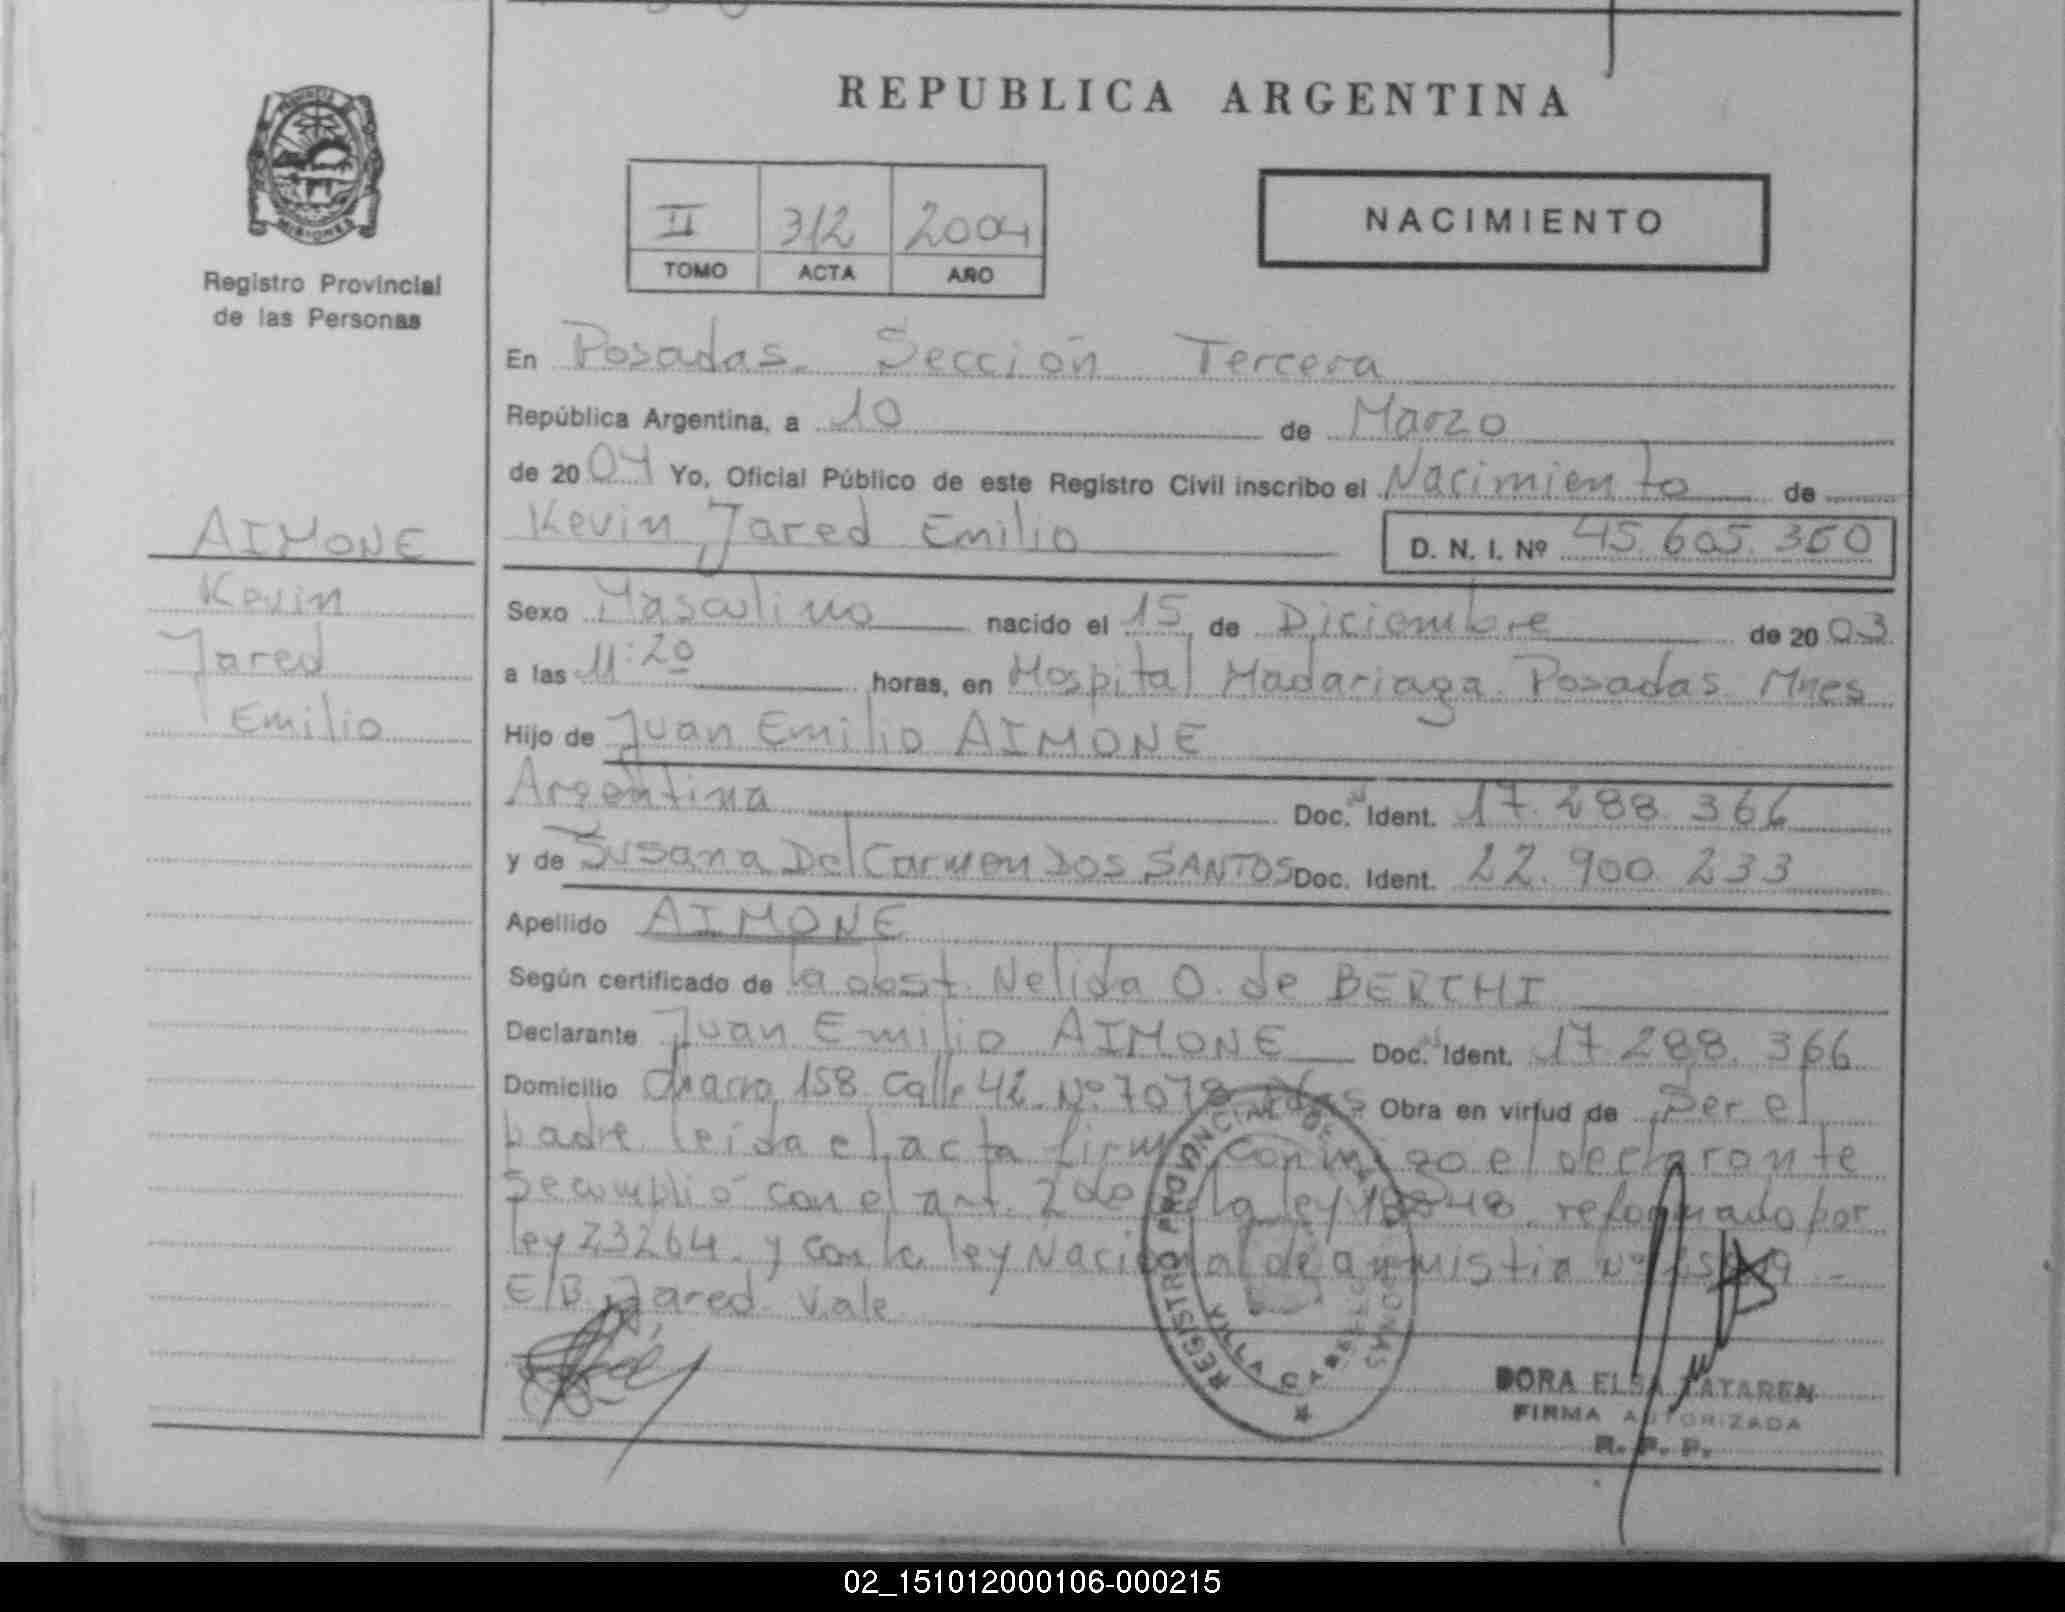 REPUBLICA ARGENTINA
PROVINCIA DE
MISIONES
Registro Provincial
de las Personas
II 312 2004
TOMO ACTA AÑO
NACIMIENTO
En Posadas. Sección Tercera
República Argentina, a 10 de Marzo
de 2004 Yo, Oficial Público de este Registro Civil inscribo el Nacimiento de
AIMONE
Kevin Jared Emilio D. N. I. Nº 45.605.360
Kevin
Jared
Emilio
Sexo Masculino nacido el 15 de Diciembre de 2003
a las 11:20 horas, en Hospital Madariaga Posadas Mnes
Hijo de Juan Emilio AIMONE
Argentina Doc. Ident. 17.288.366
y de Susana Del Carmen DOS SANTOS Doc. Ident. 22.900.233
Apellido AIMONE
Según certificado de la obst. Nelida O. de
Declarante Juan Emilio AIMONE Doc. Ident. 17.288.366
Domicilio Chacra 158 Calle 42 Nº 7078 Pdas Obra en virtud de Ser el
padre leida el acta firma conmigo el declarante
Se cumplió con el art. 2do de la ley reformado por
ley 23264. y con la ley Nacional de amnistia Nº
E/B Jared Vale
REGISTRO PROVINCIAL DE LAS PERSONAS
VILLA CABELLO
DORA ELSA
FIRMA AUTORIZADA
R. P. P.
02_151012000106-000215